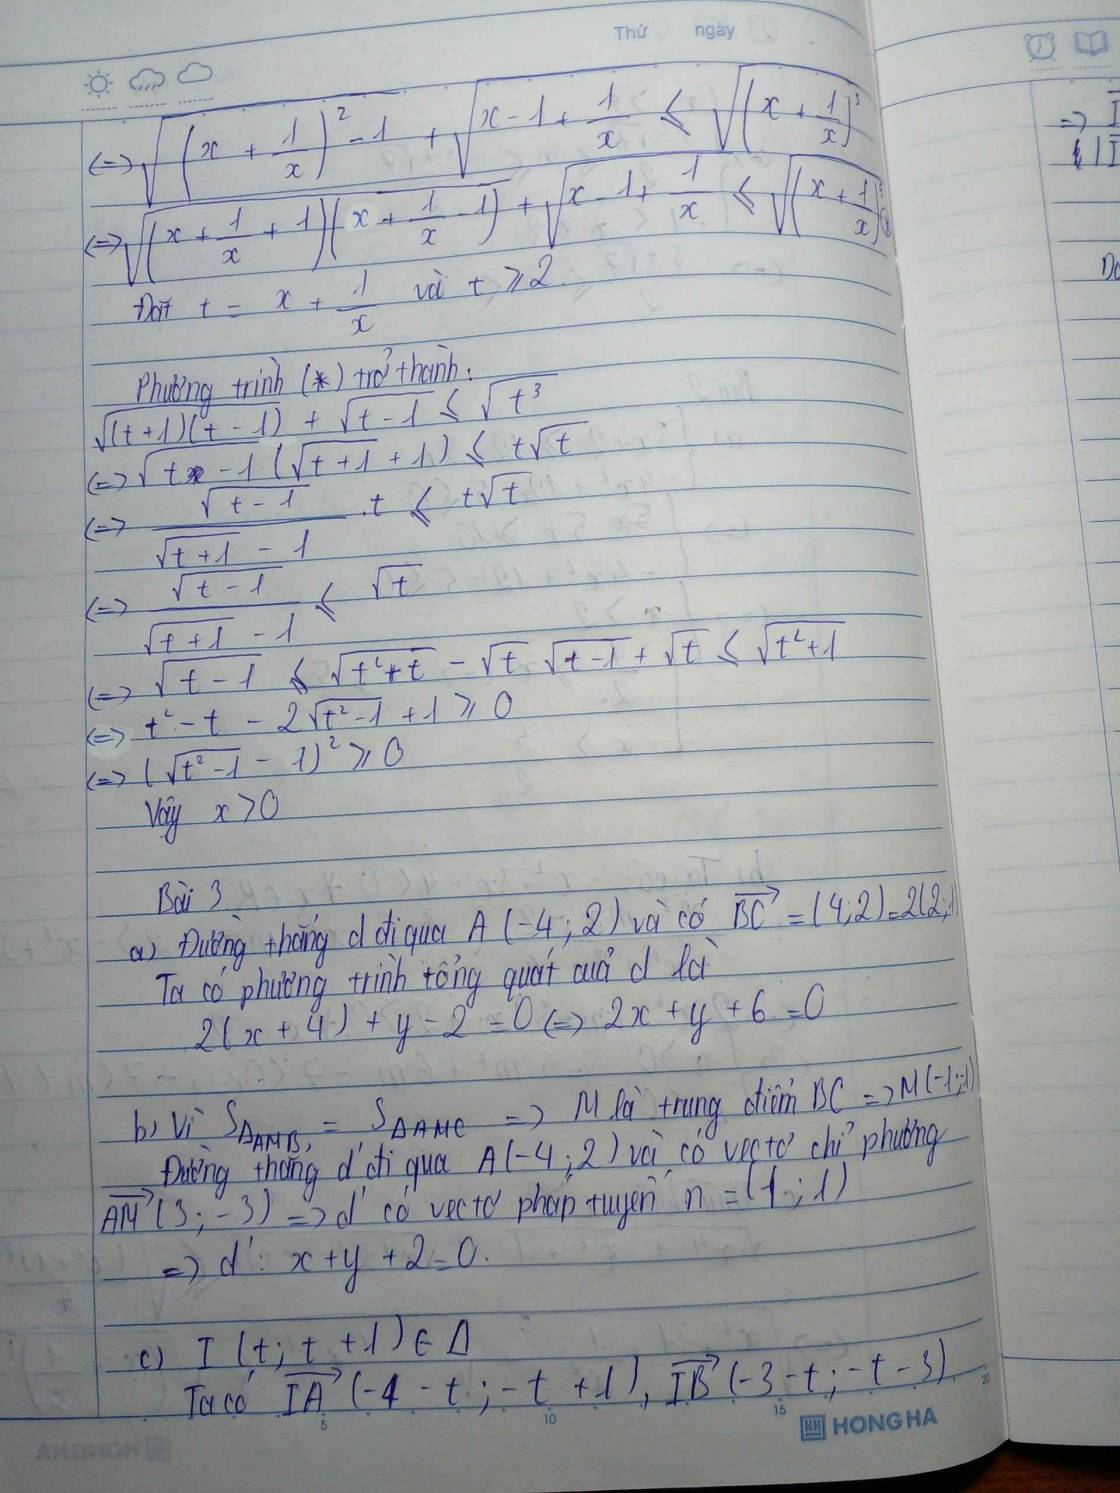 Thứ ngày
(=) √((x + 1/x)² - 1) + √(x - 1 + 1/x) ⩽ √((x + 1/x)³)
(=) √((x + 1/x + 1)(x + 1/x - 1)) + √(x - 1 + 1/x) ⩽ √((x + 1/x)³)
Đặt t = x + 1/x và t ⩾ 2
Phương trình (*) trở thành:
√((t+1)(t-1)) + √(t-1) ⩽ √(t³)
(=) √(t-1) (√(t+1) + 1) ⩽ t√t
(=) √(t-1) / (√(t+1) - 1) . t ⩽ t√t
(=) √(t-1) / (√(t+1) - 1) ⩽ √t
(=) √(t-1) ⩽ √(t²+t) - √t √(t-1) + √t ⩽ √(t²+1)
(=) t² - t - 2√(t²-1) + 1 ⩾ 0
(=) (√(t²-1) - 1)² ⩾ 0
Vậy x > 0
Bài 3
a) Đường thẳng d đi qua A (-4; 2) và có BC→ = (4;2) = 2(2;1)
Ta có phương trình tổng quát của d là
2(x + 4) + y - 2 = 0 (=) 2x + y + 6 = 0
b) Vì S∆AMB = S∆AMC => M là trung điểm BC => M(-1;-1)
Đường thẳng d' đi qua A(-4; 2) và có vectơ chỉ phương
AM→ (3; -3) => d' có vectơ pháp tuyến n = (1; 1)
=> d': x + y + 2 = 0.
c) I (t; t + 1) ∈ ∆
Ta có IA→ (-4 - t; -t + 1), IB→ (-3 - t; -t - 3)
5 10 15 20
HONG HA
=> I